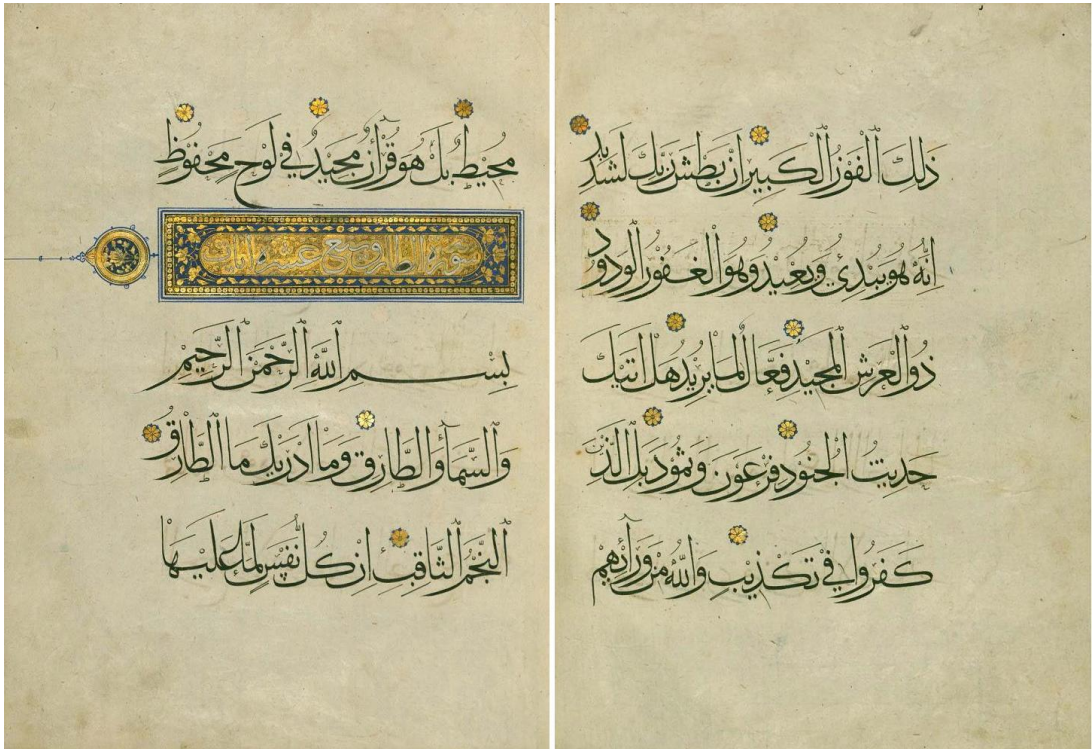 ذَلِكَ الْفَوْزُ الْكَبِيرُ اِنَّ بَطْشَ رَبِّكَ لَشَدِيدٌ
اِنَّهُ هُوَ يُبْدِئُ وَيُعِيدُ وَهُوَ الْغَفُورُ الْوَدُودُ
ذُو الْعَرْشِ الْمَجِيدُ فَعَّالٌ لِمَا يُرِيدُ هَلْ اَتٰيكَ
حَدِيثُ الْجُنُودِ فِرْعَوْنَ وَثَمُودَ بَلِ الَّذِينَ
كَفَرُوا فِي تَكْذِيبٍ وَاللّٰهُ مِنْ وَرَآئِهِمْ
مُحِيطٌ بَلْ هُوَ قُرْآنٌ مَجِيدٌ فِي لَوْحٍ مَحْفُوظٍ
سورة الطارق سبع عشرة
بِسْمِ اللّٰهِ الرَّحْمَنِ الرَّحِيمِ
وَالسَّمَآءِ وَالطَّارِقِ وَمَا اَدْرٰيكَ مَا الطَّارِقُ
النَّجْمُ الثَّاقِبُ اِنْ كُلُّ نَفْسٍ لَمَّا عَلَيْهَا